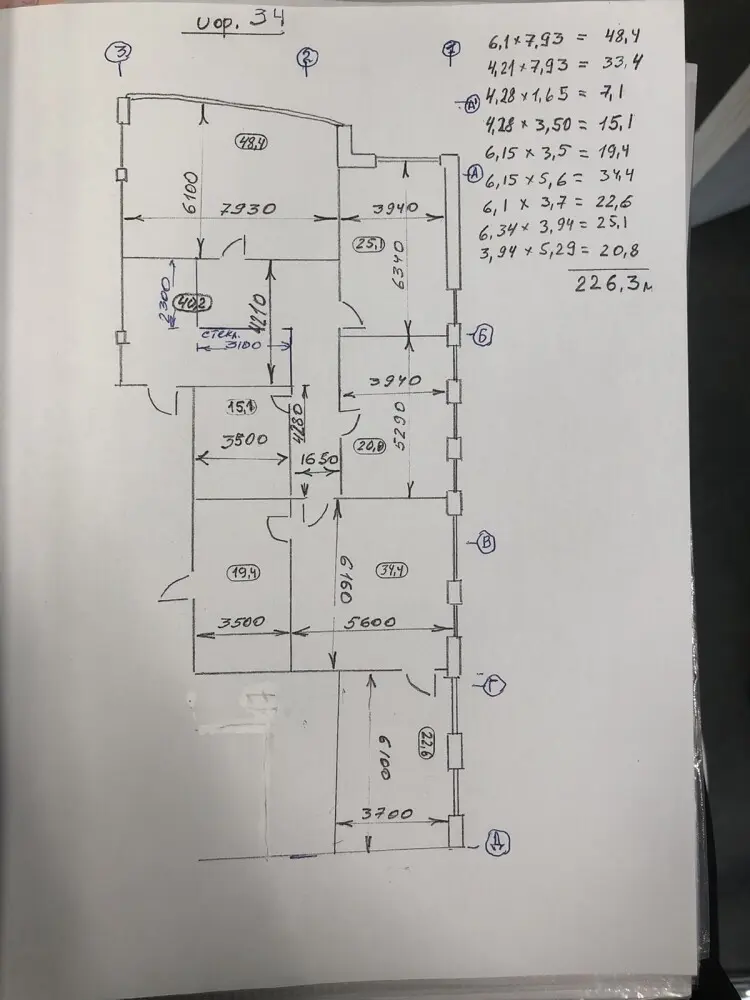 34
3
2
6,1 × 7,93 = 48,4
4,21 × 7,93 = 33,4
4,28 × 1,65 = 7,1
4,28 × 3,50 = 15,1
6,15 × 3,5 = 19,4
6,15 × 5,6 = 34,4
6,1 × 3,7 = 22,6
6,34 × 3,94 = 25,1
3,94 × 5,29 = 20,8
226,3м
А'
А
48,4
6100
7930
3940
25,1
6340
2300
40,2
4210
стекл.
3100
Б
3940
15,1
4280
3500
20,8
5290
1650
В
19,4
34,4
6150
3500
5600
Г
22,6
6100
3700
Д